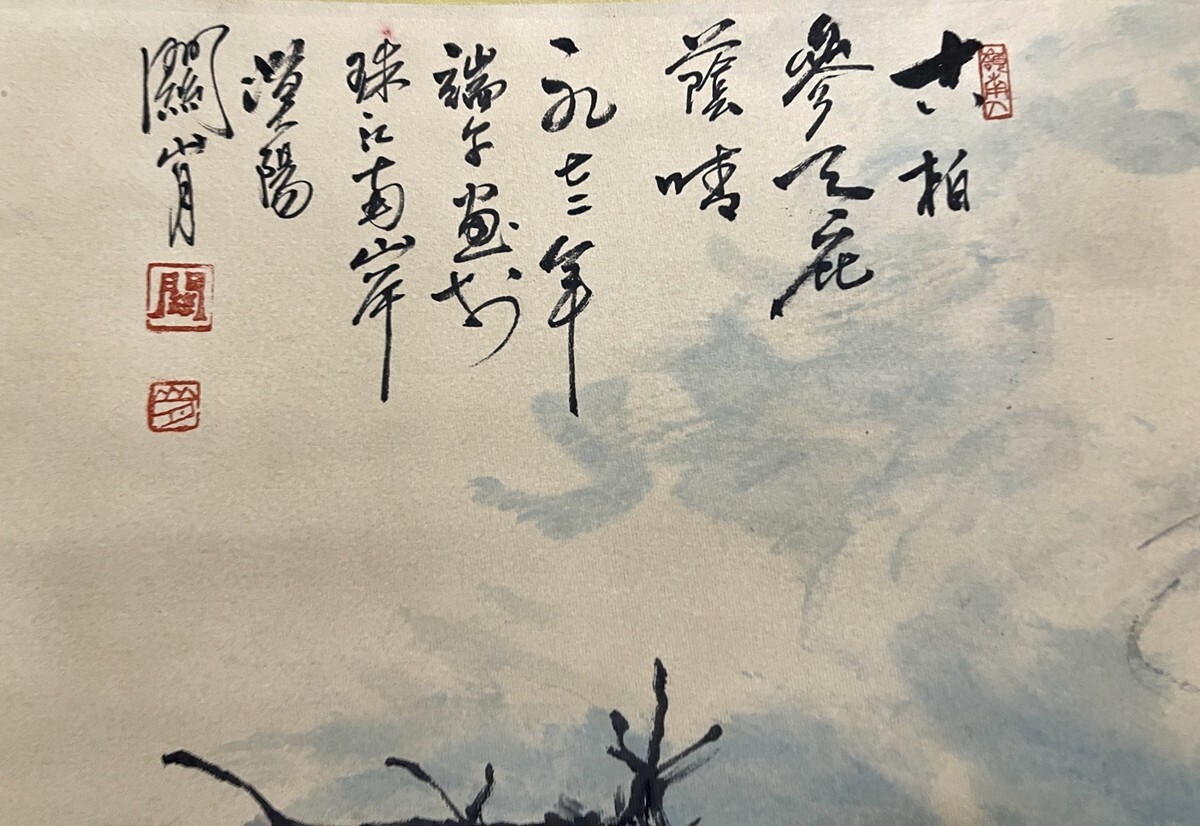 嶺南人
古柏
參天庇
蔭晴
一九七年
端午画於
珠江南岸
漠陽
關山月
關
山月